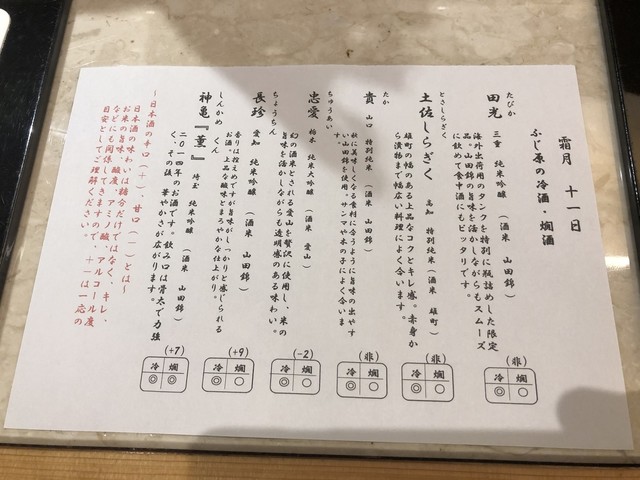 霜月　十一日
ふじ原の冷酒・燗酒
たびか
田光　三重　純米吟醸　（酒米　山田錦）
海外出荷用のタンクを特別に瓶詰めした限定
品。山田錦の旨味を活かしながらもスムーズ
に飲めて食中酒にもピッタリです。
(非)
冷 燗
◎ ○
とさしらぎく
土佐しらぎく　高知　特別純米（酒米　雄町）
雄町の幅のある上品なコクとキレ感。赤身か
ら漬物まで幅広い料理によく合います。
(非)
冷 燗
◎ ○
たか
貴　山口　特別純米　（酒米　山田錦）
秋に美味しくなる食材に合うように旨味の出やす
い山田錦を使用。サンマや木の子によく合いま
す。
(非)
冷 燗
◎ ○
ちゅうあい
忠愛　栃木　純米大吟醸　（酒米　愛山）
幻の酒米とされる愛山を贅沢に使用し、米の
旨味を活かしながらも透明感のある味わい。
(-2)
冷 燗
◎ ○
ちょうちん
長珍　愛知　純米吟醸　（酒米　山田錦）
香りは控えめですが旨味がしっかりと感じられる
お酒。上品な酸味とまろやかな仕上がり。
(+9)
冷 燗
◎ ○
しんかめ　くん
神亀『薫』　埼玉　純米吟醸　（酒米　山田錦）
二〇一四年のお酒です。飲み口は骨太で力強
く、その後、華やかさが広がります。
(+7)
冷 燗
◎ ◎
～日本酒の辛口（＋）、甘口（－）とは～
日本酒の味わいは糖分だけではなく、キレ、
お米の旨味、酸度、アミノ酸、アルコール度
などにも関係してきますので、＋－は一応の
目安としてご理解ください。